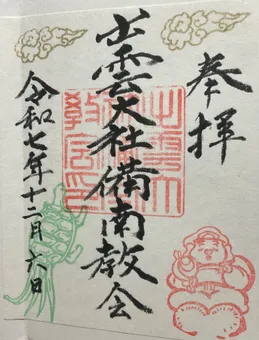 奉拝
出雲大社備南教会
令和七年十二月六日